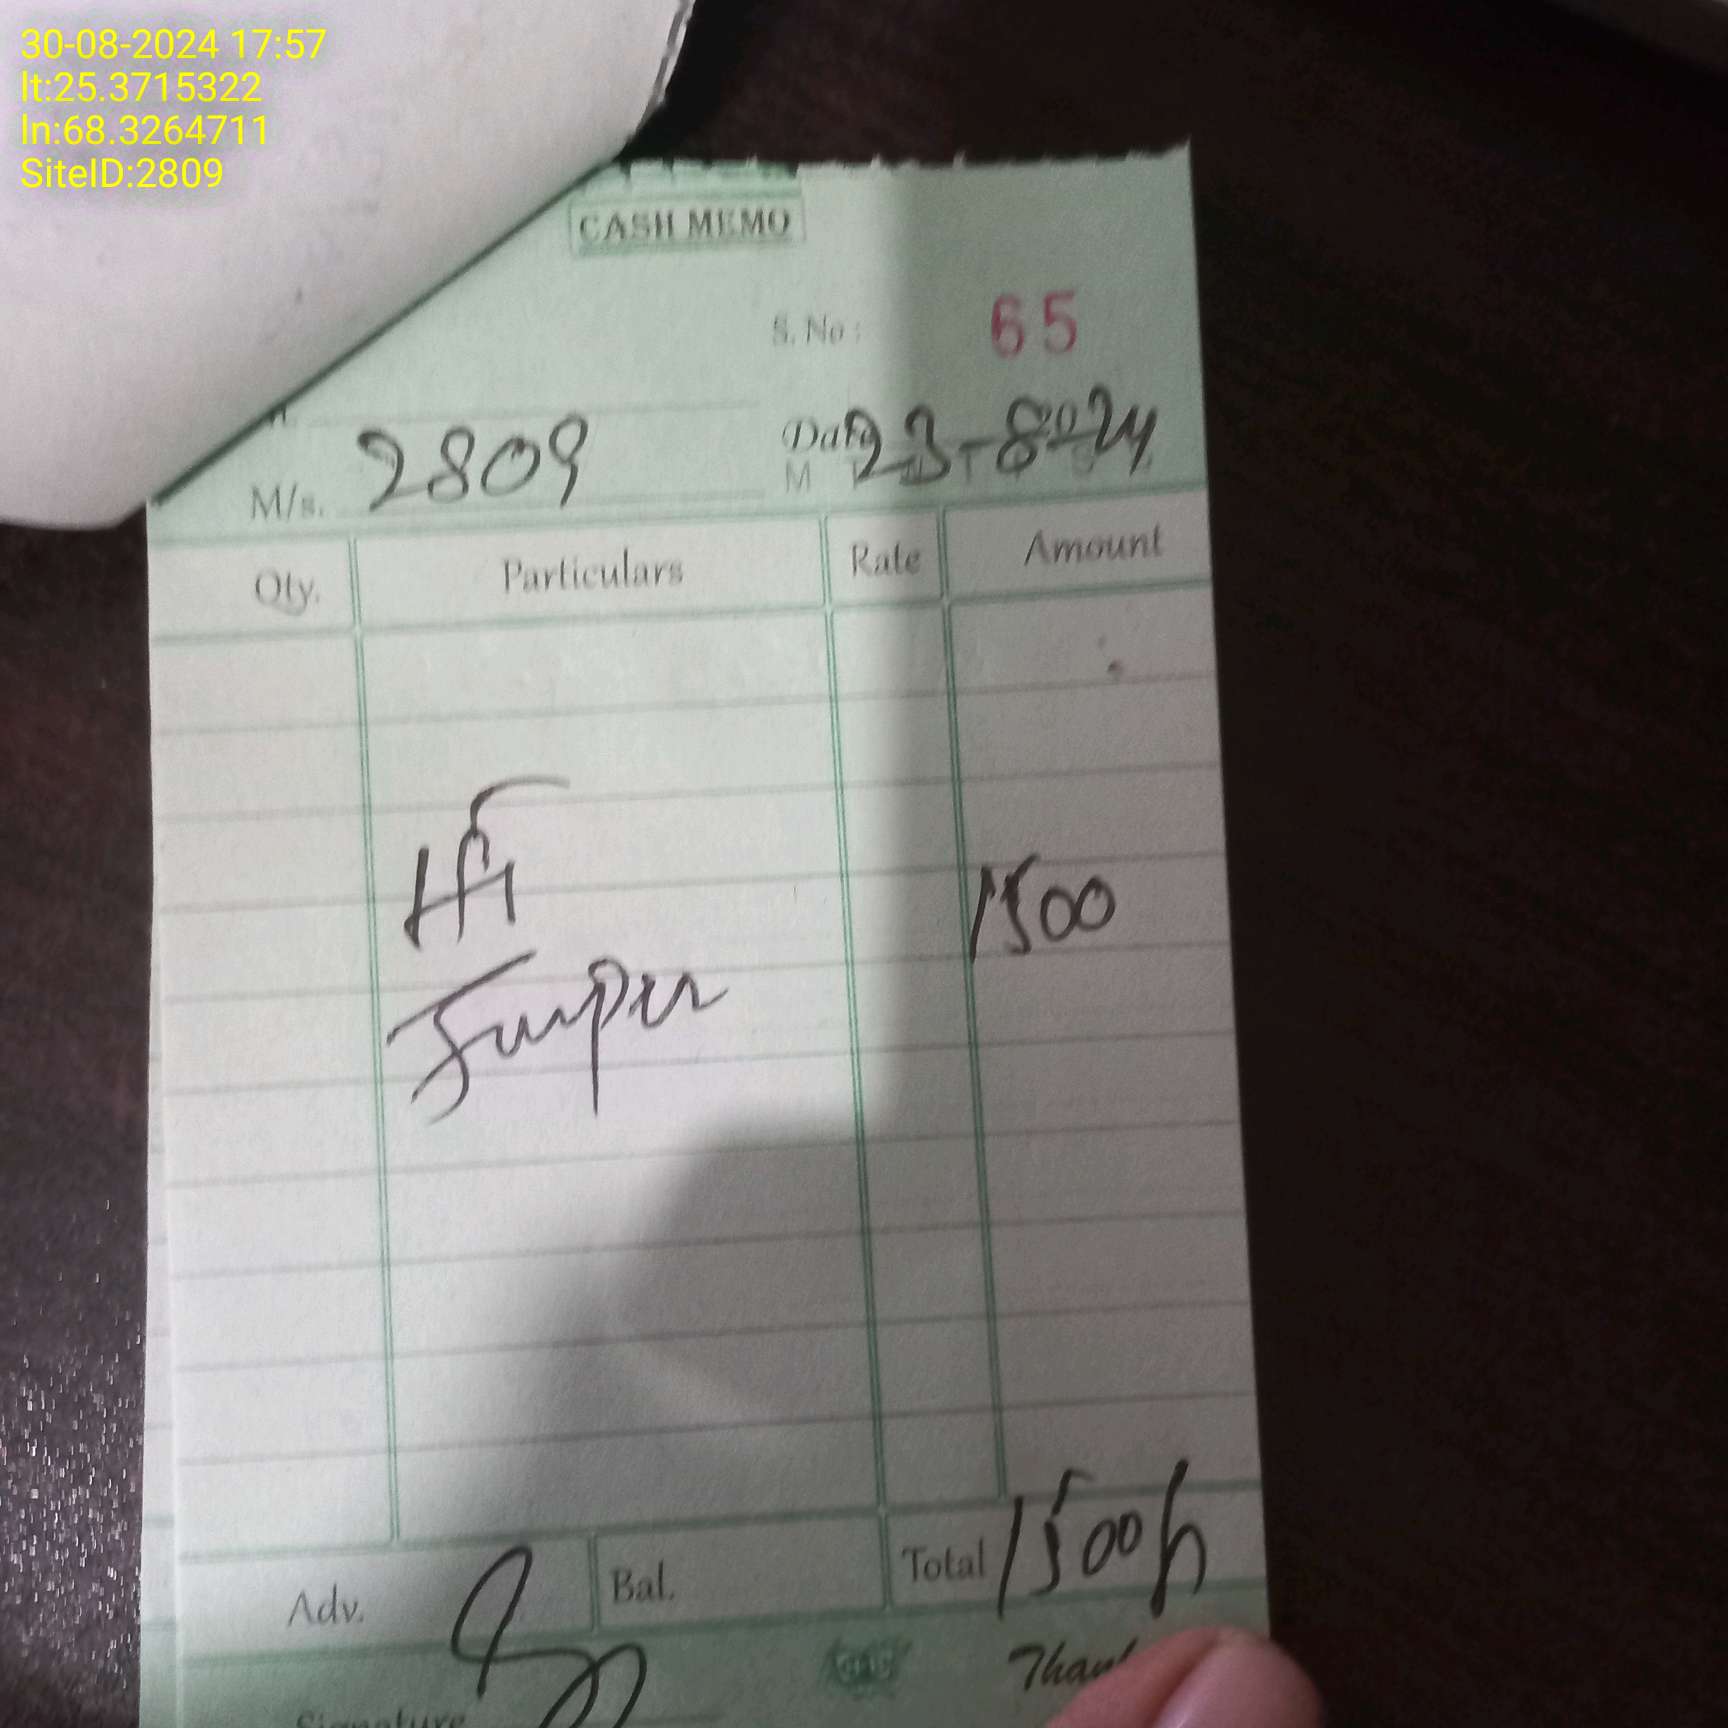 30-08-2024 17:57
lt:25.3715322
ln:68.3264711
SiteID:2809
CASH MEMO
S. No : 65
M/s. 2809 Date 23-8-24
Qty. Particulars Rate Amount
1500
Jumper
Adv. Bal. Total 1500
Signature